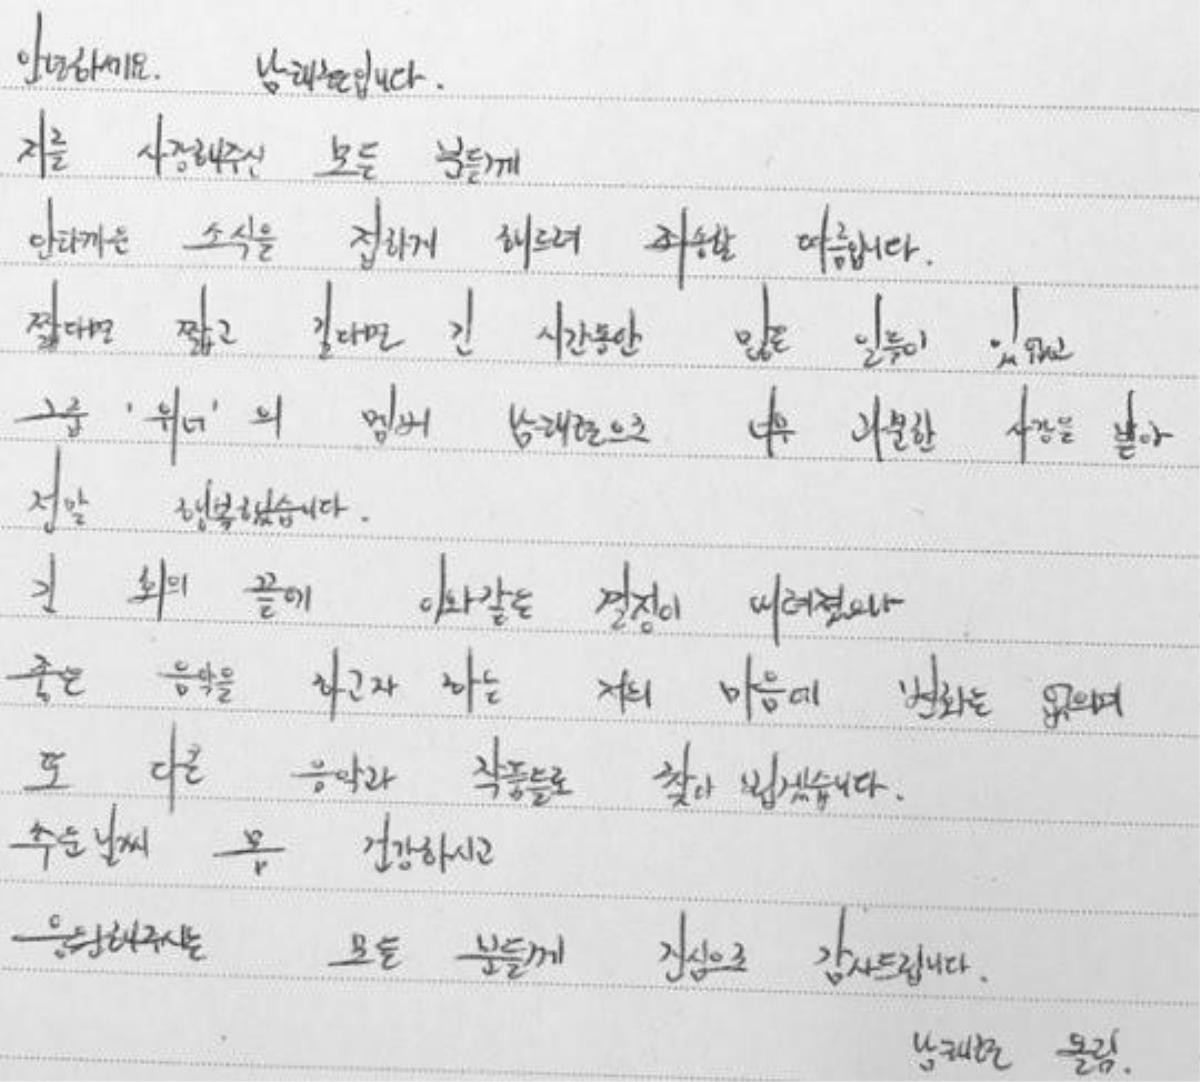 안녕하세요. 남태현입니다.
저를 사랑해주신 모든 분들께
안타까운 소식을 접하게 해드려 죄송할 따름입니다.
짧다면 짧고 길다면 긴 시간동안 많은 일들이 있었고
그룹 '위너'의 멤버 남태현으로 너무 과분한 사랑을 받아
정말 행복했습니다.
긴 회의 끝에 이와같은 결정이 내려졌으나
좋은 음악을 하고자 하는 저의 마음에 변화는 없으며
또 다른 음악과 작품들로 찾아 뵙겠습니다.
추운 날씨 몸 건강하시고
응원해주시는 모든 분들께 진심으로 감사드립니다.
남태현 올림.